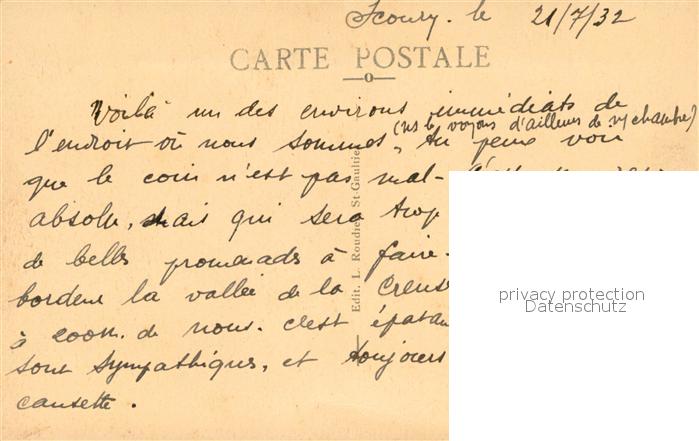 Scoury. le 21/7/32
CARTE POSTALE
Voilà un des environs immédiats de
(ns le voyons d'ailleurs de ns chambre)
l'endroit où nous sommes, tu peux voir
que le coin n'est pas mal-
absolu, mais qui sera trop
de belles promenades à faire-
bordent la vallée de la Creuse
à 200m. de nous. c'est
sont sympathiques, et toujours
causette.
Edit. L. Roudier, St-Gaultier
privacy protection
Datenschutz